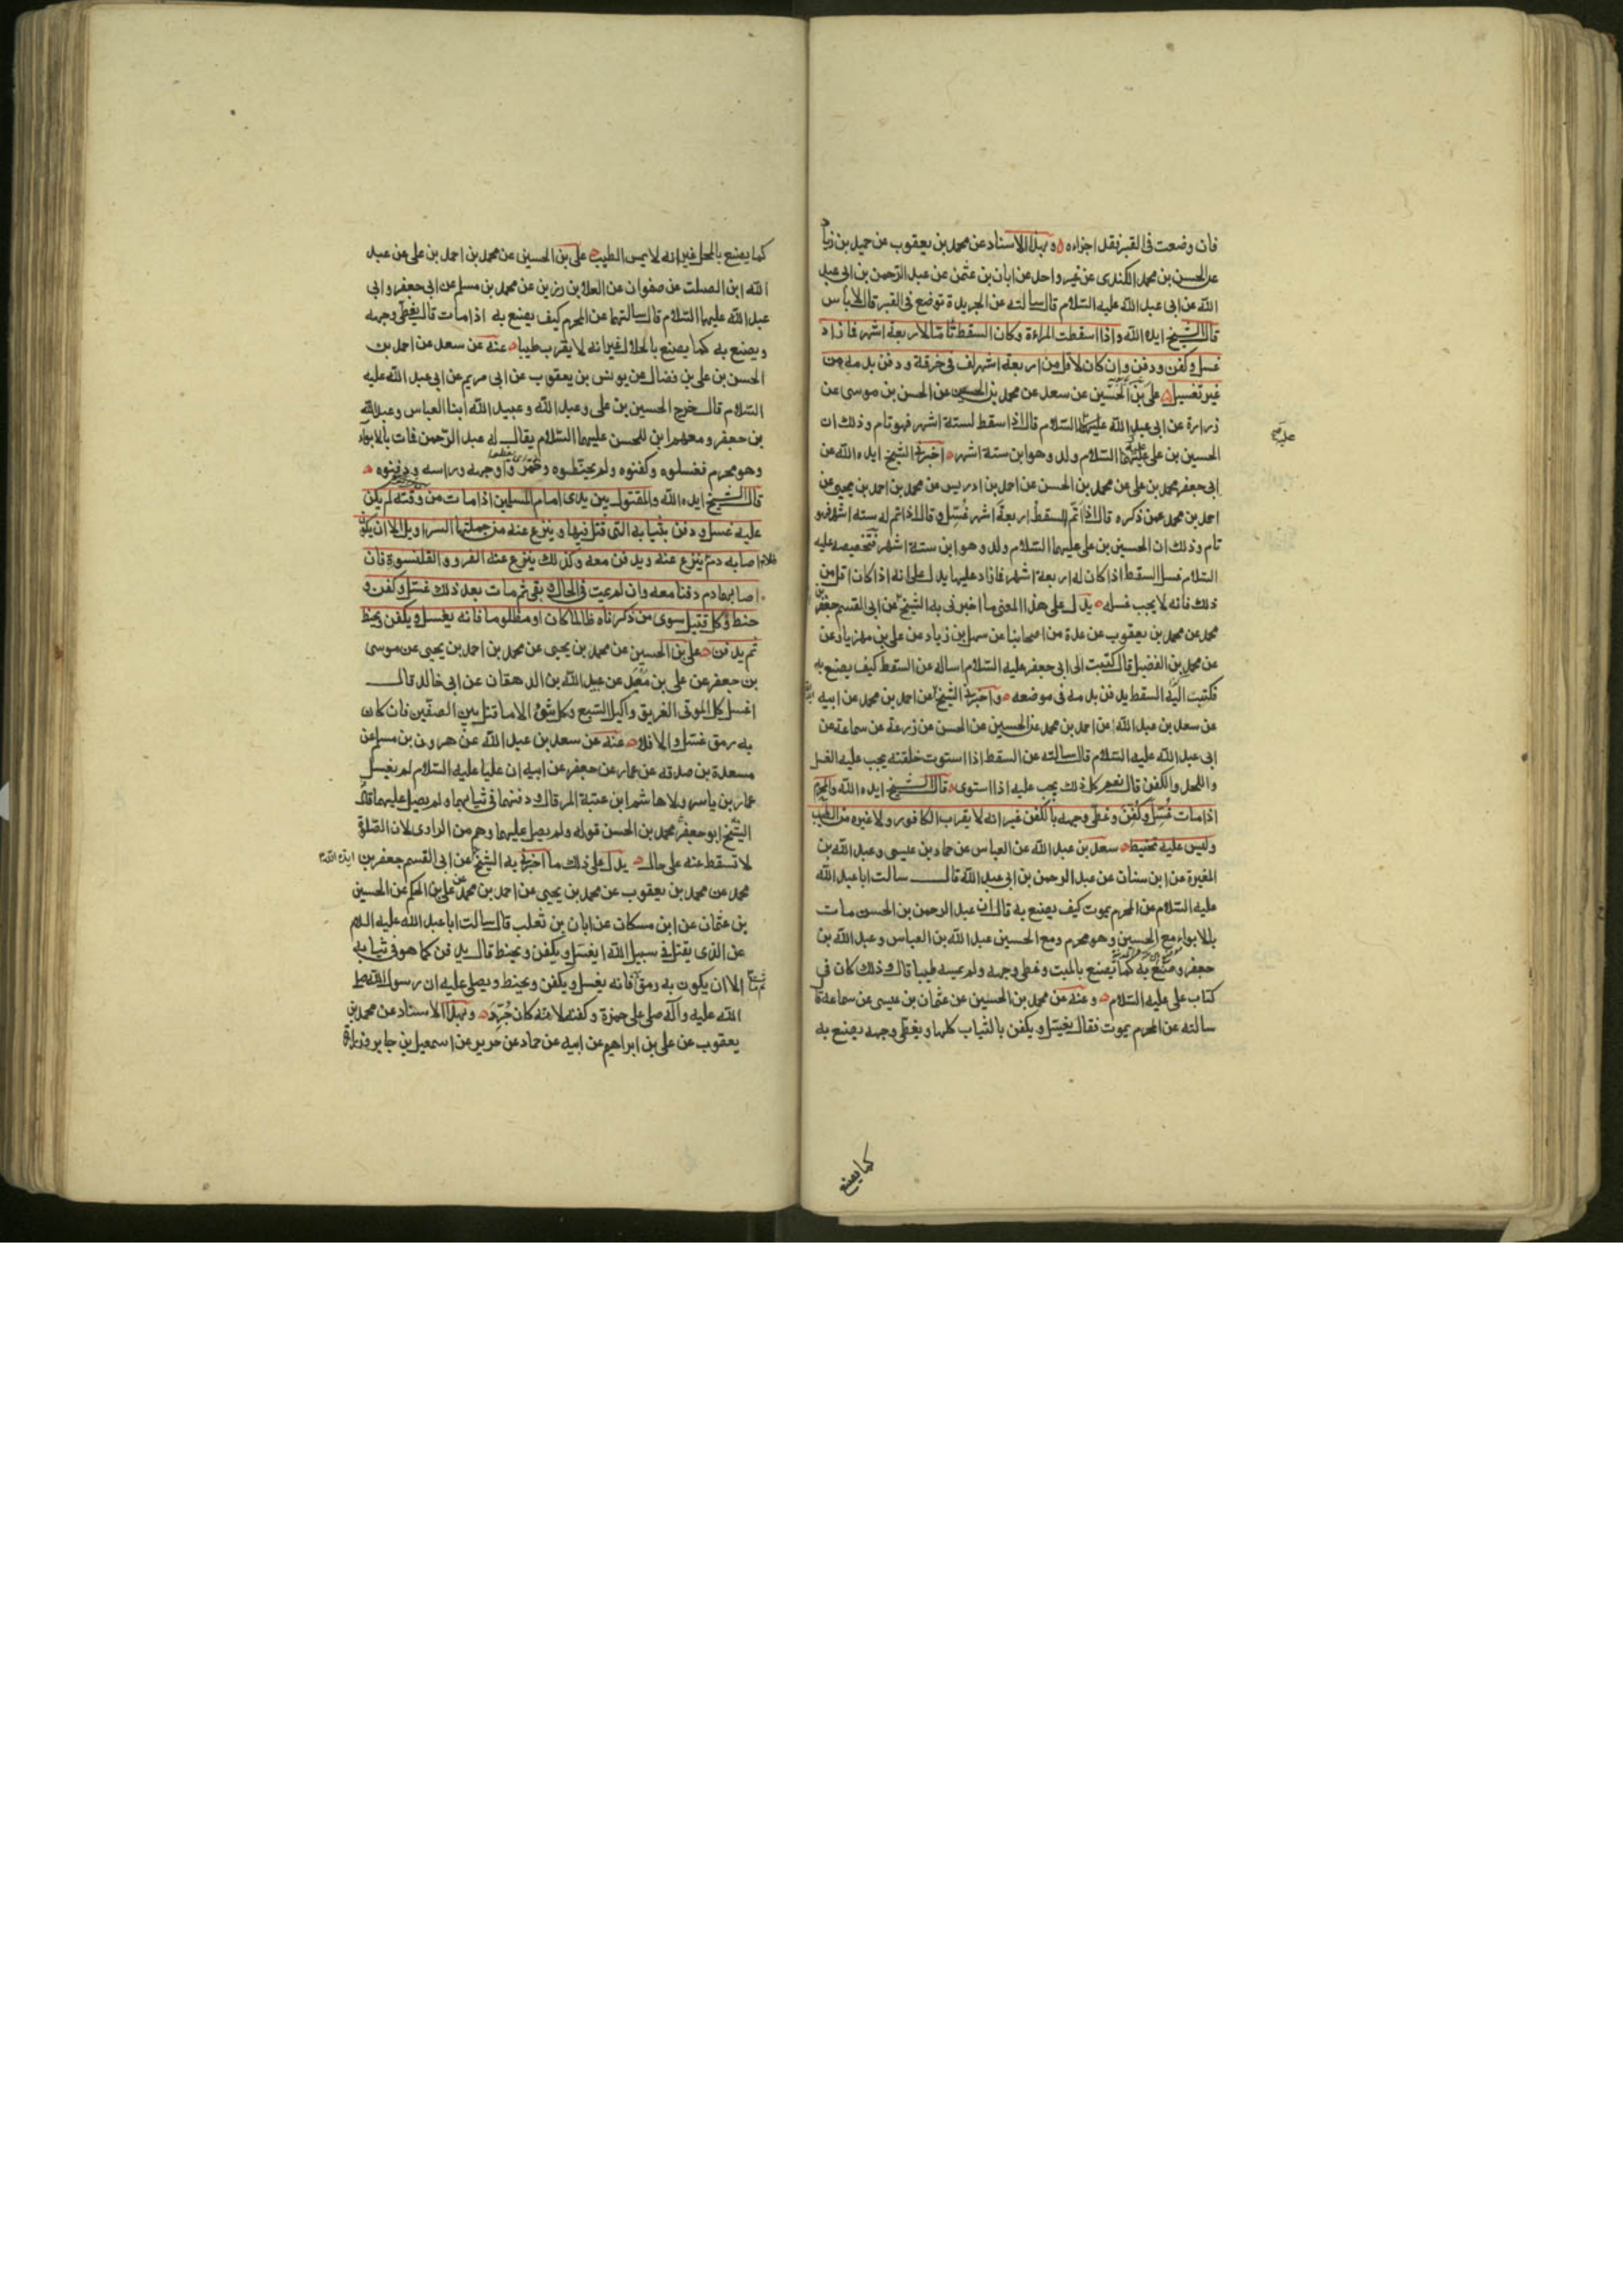 فان وضعت فى القبر فقد اجزاه وبهذا الاسناد عن محمد بن يعقوب عن حميد بن زياد
عن الحسن بن محمد الكندى عن غير واحد عن ابان بن عثمن عن عبد الرّحمن بن ابى عبد
الله عن ابى عبد الله عليه السّلام قال سالته عن الجريدة توضع فى القبر قال لاباس
قال الشيخ ايده الله واذا اسقطت المراءة وكان السقط تاما لاربعة اشهر فازاد
غسل وكفن ودفن وان كان لاقل من اربعة اشهر لف فى خرقة ودفن بدمه من
غير تغسيل على بن الحسين عن سعد عن محمد بن الحسين عن الحسن بن موسى عن
زرارة عن ابى عبد الله عليه السّلام قال اذا سقط لستة اشهر فهو تام وذلك ان
الحسين بن على عليهما السّلام ولد وهو ابن ستة اشهر اخبرنى الشيخ ايده الله عن
ابى جعفر محمد بن على عن محمد بن الحسن عن احمد بن ادريس عن محمد بن احمد بن يحيى عن
احمد بن محمد عمن ذكره قال اذا تمّ السقط اربعة اشهر غسّل وقال اذا تم له ستة اشهر فهو
تام وذلك ان الحسين بن على عليهما السّلام ولد وهو ابن ستة اشهر فتخصيصه عليه
السّلام غسل السقط اذا كان له اربعة اشهر فازاد عليها يدل على انه اذا كان اقل من
ذلك فانه لا يجب غسله يدل على هذا المعنى ما اخبرنى به الشيخ عن ابى القسم جعفر بن
محمد عن محمد بن يعقوب عن عدة من اصحابنا عن سهل بن زياد عن على بن مهزيار عن
عن محمد بن الفضيل قال كتبت الى ابى جعفر عليه السّلام اساله عن السقط كيف يصنع به
فكتب الىّ السقط يدفن بدمه فى موضعه واخبرنى الشيخ عن احمد بن محمد عن ابيه
عن سعد بن عبد الله عن احمد بن محمد عن الحسين عن الحسن عن زرعة عن سماعة عن
ابى عبد الله عليه السّلام قال سالته عن السقط اذا استوت خلقته يجب عليه الغسل
واللحد والكفن قال نعم كل ذلك يجب عليه اذا استوى قال الشيخ ايده الله والمحرم
اذا مات غُسّل وكُفّن وغطّى وجهه بالكفن غير انه لا يقرب الكافور ولا غيره من الطيب
وليس عليه تحنيط سعد بن عبد الله عن العباس عن حماد بن عيسى وعبد الله بن
المغيرة عن ابن سنان عن عبد الرحمن بن ابى عبد الله قال سالت ابا عبد الله
عليه السّلام عن المحرم يموت كيف يصنع به قال ان عبد الرحمن بن الحسن مات
بالابواء مع الحسين وهو محرم ومع الحسين عبد الله بن العباس وعبد الله بن
جعفر وصنع به كما يصنع بالميت وغطى وجهه ولم يمسه طيبا قال وذلك كان فى
كتاب على عليه السّلام وعنه عن محمد بن الحسين عن عثمان بن عيسى عن سماعة قال
سالته عن المحرم يموت فقال يغسّل ويكفن بالثياب كلها ويغطى وجهه يصنع به
كما يصنع
كما يصنع بالمحل غير انه لا يمس الطيب على بن الحسين عن محمد بن احمد بن على عن عبد
الله ابن الصلت عن صفوان عن العلا بن رزين عن محمد بن مسلم عن ابى جعفر وابى
عبد الله عليهما السّلام قال سالتهما عن المحرم كيف يصنع به اذا مات قال يغطّى وجهه
ويصنع به كما يصنع بالحلال غير انه لا يقرب طيبا عنه عن سعد عن احمد بن
الحسن بن على بن فضال عن يونس بن يعقوب عن ابى مريم عن ابى عبد الله عليه
السّلام قال خرج الحسين بن على وعبد الله وعبيد الله ابنا العباس وعبد الله
بن جعفر ومعهم ابن للحسن عليهما السّلام يقال له عبد الرّحمن فمات بالابواء
وهو محرم فغسلوه وكفنوه ولم يحنّطوه وخمّروا وجهه وراسه ودفنوه
قال الشيخ ايده الله والمقتول بين يدى امام المسلمين اذا مات من وقته لم يكن
عليه غسل ودفن بثيابه التى قتل فيها وينزع عنه من جملتها السراويل الا ان يكون
اصابه دم فلا ينزع عنه ويدفن معه وكذلك ينزع عنه الفرو والقلنسوة فان
اصابهما دم دفنا معه وان لم يمت فى الحال وبقى ثم مات بعد ذلك غسّل وكفن و
حنط وكل قتيل سوى من ذكرناه ظالما كان او مظلوما فانه يغسل ويكفن ويحنط
ثم يدفن على بن الحسين عن محمد بن يحيى عن محمد بن احمد بن يحيى عن موسى
بن جعفر عن على بن معبد عن عبيد الله بن الدهقان عن ابى خالد قال
اغسل كل الموتى الغريق واكيل السّبع وكل شئ الا ما قتل بين الصفّين فان كان
به رمق غسّل والا فلا عنه عن سعد بن عبد الله عن هرون بن مسلم عن
مسعدة بن صدقه عن عمار عن جعفر عن ابيه ان عليا عليه السّلام لم يغسل
عمار بن ياسر ولا هاشم ابن عتبة المرقال ودفنهما فى ثيابهما ولم يصل عليهما قال
الشيخ ابو جعفر محمد بن الحسن قوله ولم يصل عليهما وهم من الراوى لان الصّلوة
لا تسقط عنه على حال يدل على ذلك ما اخبرنى به الشيخ ايده الله عن ابى القسم جعفر بن
محمد عن محمد بن يعقوب عن محمد بن يحيى عن احمد بن محمد عن على بن الحكم عن الحسين
بن عثمان عن ابن مسكان عن ابان بن تغلب قال سالت ابا عبد الله عليه السلام
عن الذى يقتل فى سبيل الله ايغسل ويكفن ويحنط قال يدفن كما هو فى ثيابه
الا ان يكون به رمق فانه يغسل ويكفن ويحنط ويصلى عليه ان رسول الله صلى
الله عليه وآله صلى على حمزة وكفنه لانه كان جُرّد وبهذا الاسناد عن محمد بن
يعقوب عن على بن ابراهيم عن ابيه عن حماد عن حريز عن اسمعيل بن جابر وزرارة